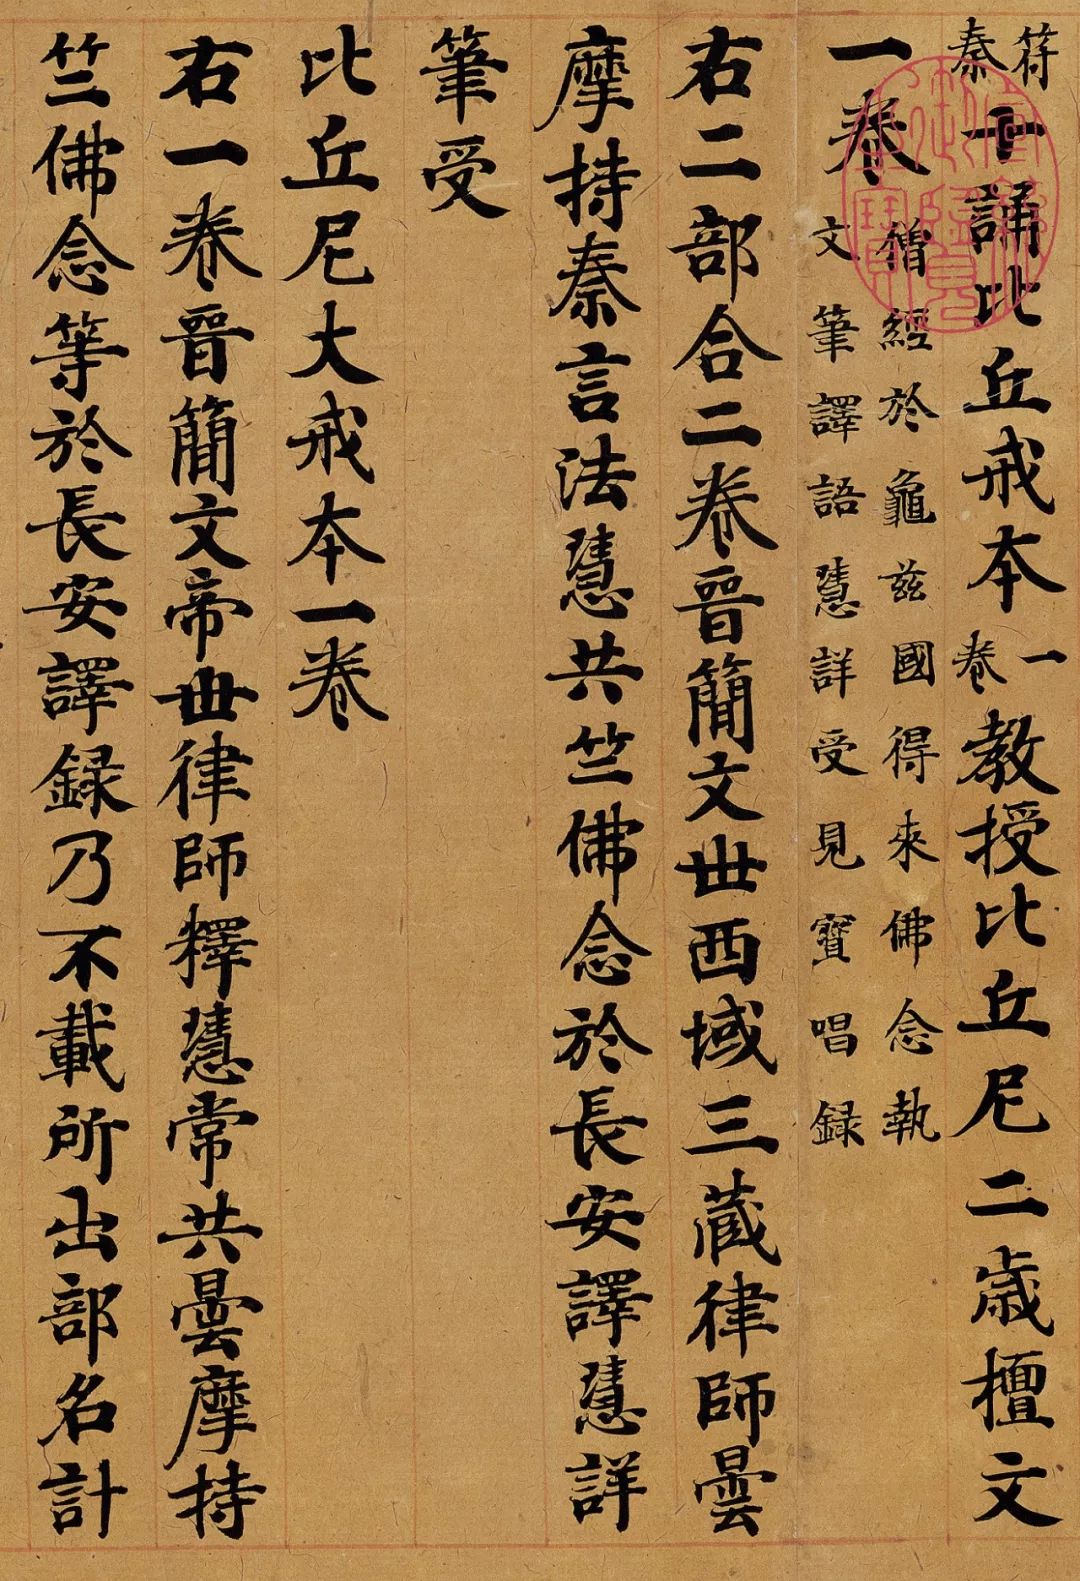 苻秦十誦比丘戒本一卷教授比丘尼二歲擅文
一卷僧經於龜茲國得來佛念執
文筆譯語慧詳受見寶唱録
右二部合二卷晉簡文世西域三藏律師曇
摩持秦言法慧共竺佛念於長安譯慧詳
筆受
比丘尼大戒本一卷
右一卷晉簡文帝世律師釋慧常共曇摩持
竺佛念等於長安譯録乃不載所出部名計
宣統御覽之寶